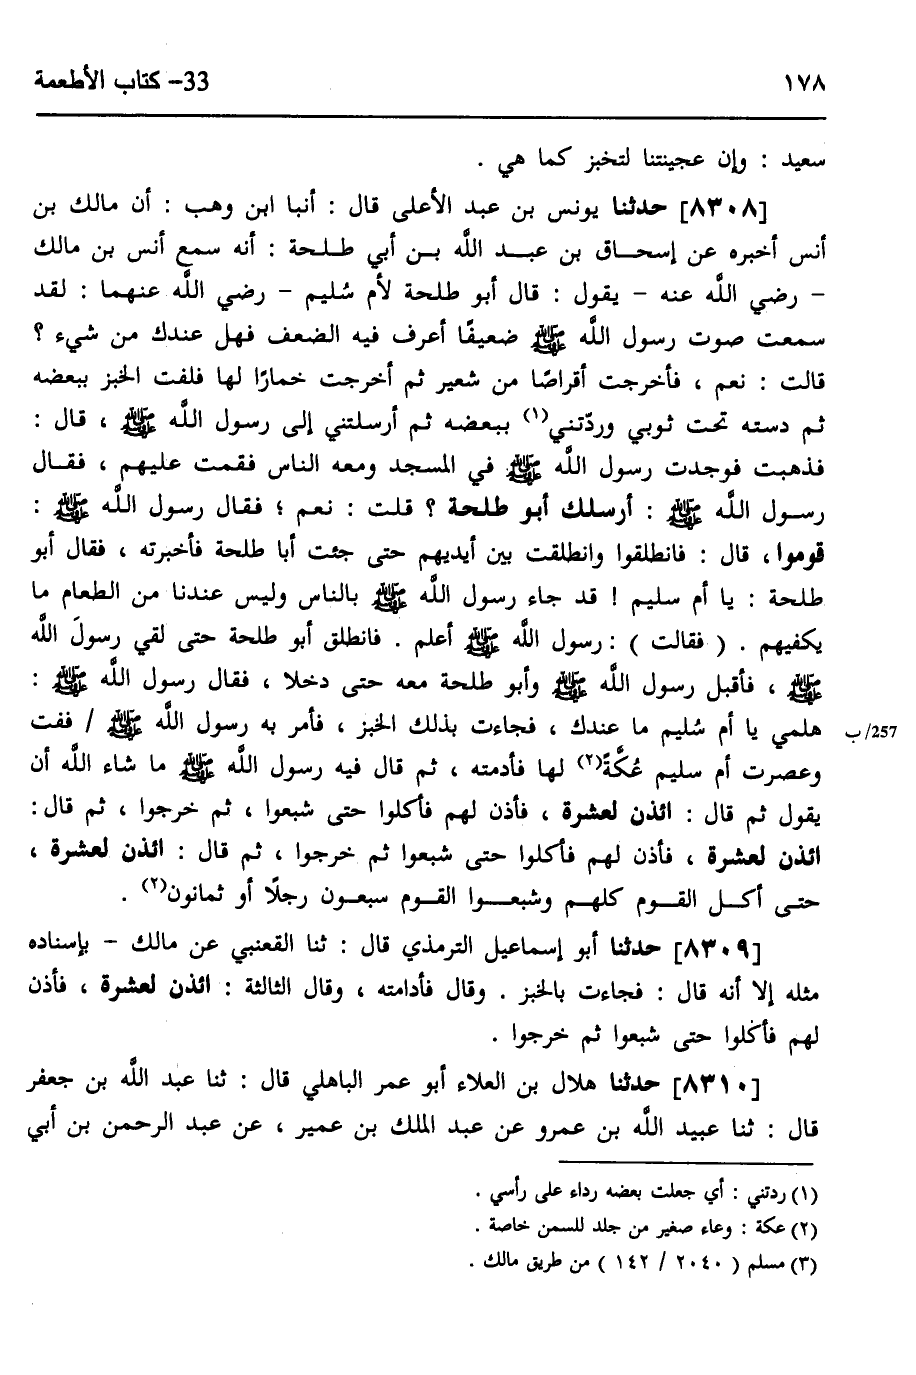 ١٧٨ 33- كتاب الأطعمة
سعيد : وإن عجينتنا لتخبز كما هي .
[٨٣٠٨] حدثنا يونس بن عبد الأعلى قال : أنبا ابن وهب : أن مالك بن
أنس أخبره عن إسحاق بن عبد اللَّه بن أبي طلحة : أنه سمع أنس بن مالك
- رضي اللَّه عنه - يقول : قال أبو طلحة لأم سُليم - رضي اللَّه عنهما : لقد
سمعت صوت رسول اللَّه ﷺ ضعيفًا أعرف فيه الضعف فهل عندك من شيء ؟
قالت : نعم ، فأخرجت أقراصًا من شعير ثم أخرجت خمارًا لها فلفت الخبز ببعضه
ثم دسته تحت ثوبي وردّتني(١) ببعضه ثم أرسلتني إلى رسول اللَّه ﷺ ، قال :
فذهبت فوجدت رسول اللَّه ﷺ في المسجد ومعه الناس فقمت عليهم ، فقال
رسول اللَّه ﷺ : أرسلك أبو طلحة ؟ قلت : نعم ؛ فقال رسول اللَّه ﷺ :
قوموا ، قال : فانطلقوا وانطلقت بين أيديهم حتى جئت أبا طلحة فأخبرته ، فقال أبو
طلحة : يا أم سليم ! قد جاء رسول اللَّه ﷺ بالناس وليس عندنا من الطعام ما
يكفيهم . ( فقالت ) : رسول اللَّه ﷺ أعلم . فانطلق أبو طلحة حتى لقي رسولَ اللَّه
ﷺ ، فأقبل رسول اللَّه ﷺ وأبو طلحة معه حتى دخلا ، فقال رسول اللَّه ﷺ :
هلمي يا أم سُليم ما عندك ، فجاءت بذلك الخبز ، فأمر به رسول اللَّه ﷺ / ففت 257/ب
وعصرت أم سليم عُكَّةً(٢) لها فأدمته ، ثم قال فيه رسول اللَّه ﷺ ما شاء اللَّه أن
يقول ثم قال : ائذن لعشرة ، فأذن لهم فأكلوا حتى شبعوا ، ثم خرجوا ، ثم قال :
ائذن لعشرة ، فأذن لهم فأكلوا حتى شبعوا ثم خرجوا ، ثم قال : ائذن لعشرة ،
حتى أكل القوم كلهم وشبعوا القوم سبعون رجلًا أو ثمانون(٢) .
[٨٣٠٩] حدثنا أبو إسماعيل الترمذي قال : ثنا القعنبي عن مالك - بإسناده
مثله إلا أنه قال : فجاءت بالخبز . وقال فأدامته ، وقال الثالثة : ائذن لعشرة ، فأذن
لهم فأكلوا حتى شبعوا ثم خرجوا .
[٨٣١٠] حدثنا هلال بن العلاء أبو عمر الباهلي قال : ثنا عبد اللَّه بن جعفر
قال : ثنا عبيد اللَّه بن عمرو عن عبد الملك بن عمير ، عن عبد الرحمن بن أبي
(١) ردتني : أي جعلت بعضه رداء على رأسي .
(٢) عكة : وعاء صغير من جلد للسمن خاصة .
(٣) مسلم ( ٢٠٤٠ / ١٤٢ ) من طريق مالك .